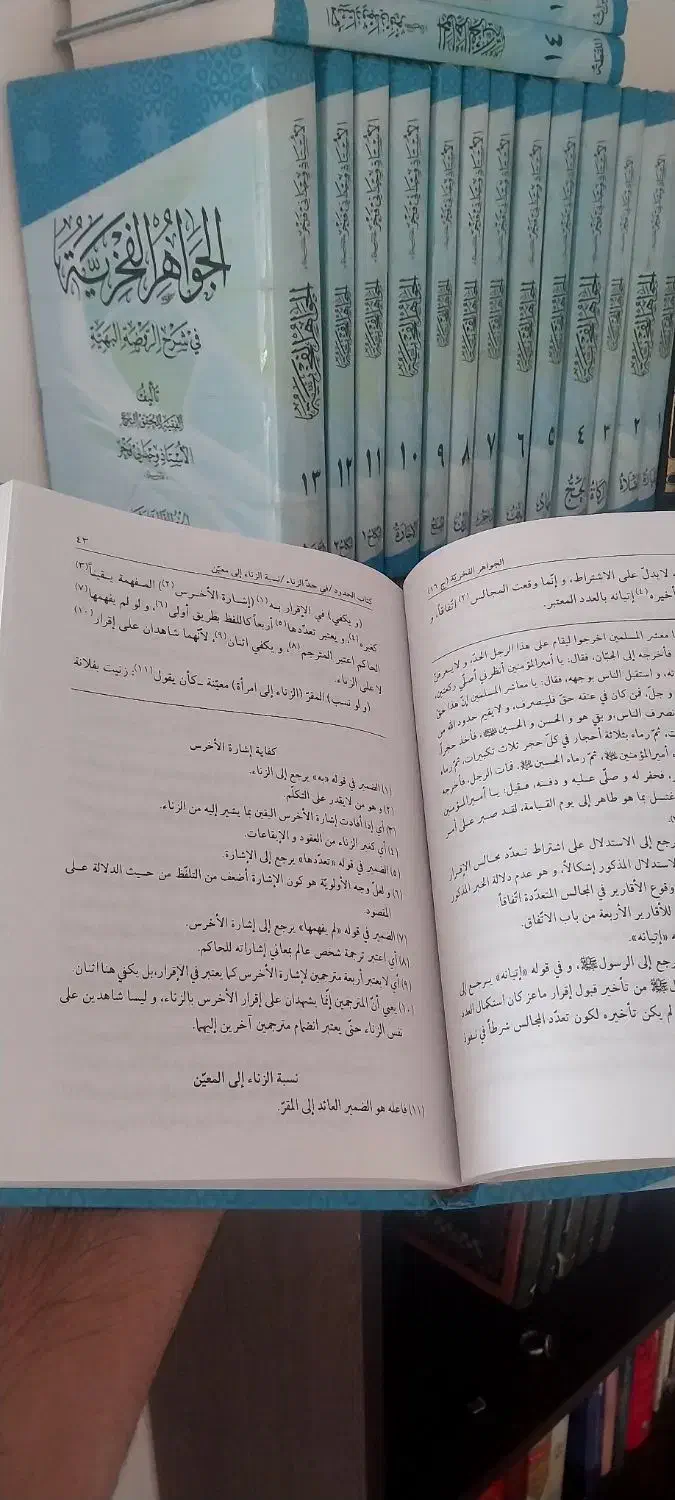 ١٤
الجواهر الفخرية
في شرح الروضة البهية
تأليف
الفقيه المحقق
الأستاذ وجداني فخر
١٣
١٢
١١
١٠
٩
٨
٧
٦
٥
٤
٣
٢
١
الإجارة
الحج
الزكاة
الصلاة
الجواهر الفخريّة (ج ١٦)
، لايدلّ على الاشتراط، و إنّما وقعت المجالس(٢) اتّفاقاً، و
أخيره(٤) إتيانه بالعدد المعتبر.
ا معشر المسلمين اخرجوا ليقام على هذا الرجل الحدّ، و لا يعرفنّ
فأخرجه إلى الجبّان، فقال: يا أميرالمؤمنين أنظرني أصلّي ركعتين،
ته، و استقبل الناس بوجهه، فقال: يا معاشر المسلمين إنّ هذا حقّ
و جلّ، فمن كان في عنقه حقّ فلينصرف، و لا يقيم حدود الله من
نصرف الناس، و بقي هو و الحسن و الحسين، فأخذ حجراً،
ت، ثمّ رماه بثلاثة أحجار في كلّ حجر ثلاث تكبيرات، ثمّ رماه
أميرالمؤمنين، ثمّ رماه الحسين، فمات الرجل، فأخرجه
، فحفر له و صلّى عليه و دفنه، فقيل: يا أميرالمؤمنين
غتسل بما هو طاهر إلى يوم القيامة، لقد صبر على أمر
رجع إلى الاستدلال على اشتراط تعدّد مجالس الإقرار
لاستدلال المذكور إشكالاً، و هو عدم دلالة الخبر المذكور
وقوع الأقارير في المجالس المتعدّدة اتّفاقاً.
للأقارير الأربعة من باب الاتّفاق.
ه «إتيانه».
رجع إلى الرسول، و في قوله «إتيانه» يرجع إلى
من تأخير قبول إقرار ماعز كان استكمال العدد
لم يكن تأخيره لكون تعدّد المجالس شرطاً في نفوذ
كتاب الحدود / في حدّ الزناء / نسبة الزناء إلى معيّن
٤٣
(و يكفي) في الإقرار به(١) (إشارة الأخرس(٢)) المفهمة يقيناً(٣)
كغيره(٤)، و يعتبر تعدّدها(٥) أربعاً كاللفظ بطريق أولى(٦)، و لو لم يفهمها(٧)
الحاكم اعتبر المترجم(٨)، و يكفي اثنان(٩)، لأنّهما شاهدان على إقرار(١٠)
لا على الزناء.
(و لو نسب) المقرّ (الزناء إلى امرأة) معيّنة ـ كأن يقول(١١): زنيت بفلانة
كفاية إشارة الأخرس
(١) الضمير في قوله «به» يرجع إلى الزناء.
(٢) و هو من لايقدر على التكلّم.
(٣) أي إذا أفادت إشارة الأخرس اليقين بما يشير إليه من الزناء.
(٤) أي كغير الزناء من العقود و الإيقاعات.
(٥) الضمير في قوله «تعدّدها» يرجع إلى الإشارة.
(٦) و لعلّ وجه الأولويّة هو كون الإشارة أضعف من التلفّظ من حيث الدلالة على
المقصود.
(٧) الضمير في قوله «لم يفهمها» يرجع إلى إشارة الأخرس.
(٨) أي اعتبر ترجمة شخص عالم بمعاني إشاراته للحاكم.
(٩) أي لايعتبر أربعة مترجمين لإشارة الأخرس كما يعتبر في الإقرار، بل يكفي هنا اثنان.
(١٠) يعني أنّ المترجمين إنّما يشهدان على إقرار الأخرس بالزناء، و ليسا شاهدين على
نفس الزناء حتّى يعتبر انضمام مترجمين آخرين إليهما.
نسبة الزناء إلى المعيّن
(١١) فاعله هو الضمير العائد إلى المقرّ.